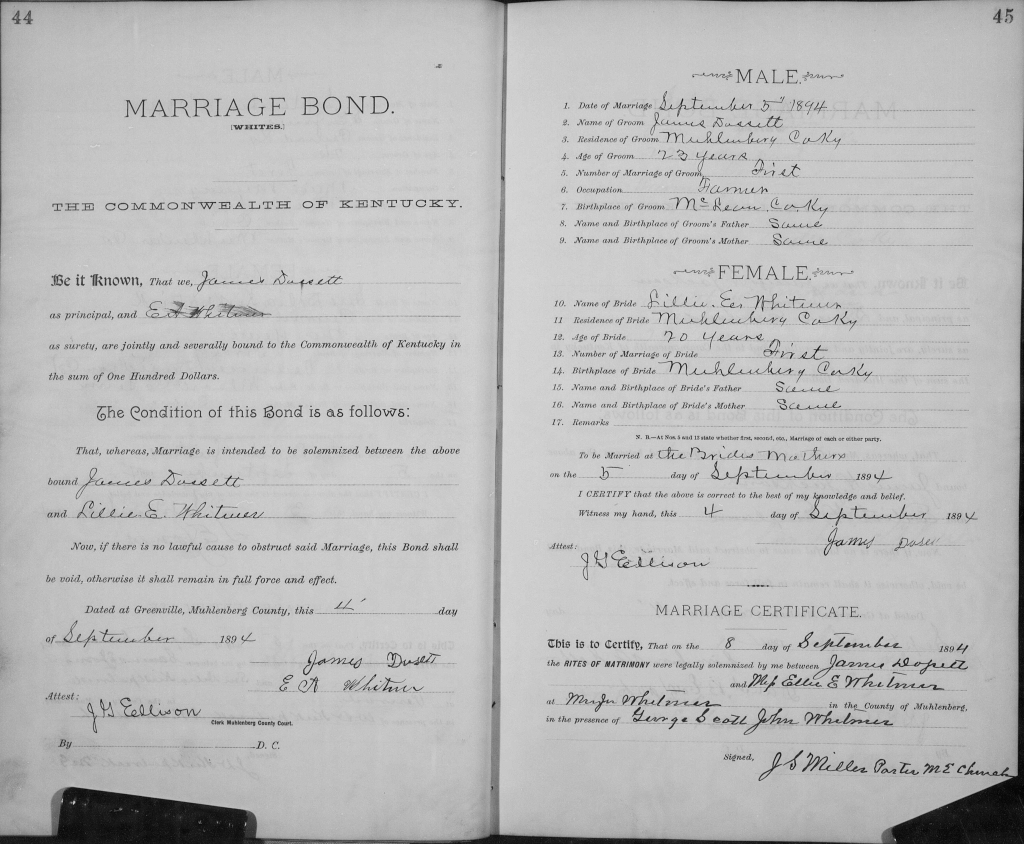 44
MARRIAGE BOND.
[WHITES.]
THE COMMONWEALTH OF KENTUCKY.
Be it Known, That we, James Dossett
as principal, and E A Whitmer
as surety, are jointly and severally bound to the Commonwealth of Kentucky in
the sum of One Hundred Dollars.
The Condition of this Bond is as follows:
That, whereas, Marriage is intended to be solemnized between the above
bound James Dossett
and Lillie. E. Whitmer
Now, if there is no lawful cause to obstruct said Marriage, this Bond shall
be void, otherwise it shall remain in full force and effect.
Dated at Greenville, Muhlenberg County, this 4 day
of September 1894
James Dosett
E A Whitmer
Attest:
J G Ellison
Clerk Muhlenberg County Court.
By D. C.
45
MALE.
1. Date of Marriage September 5" 1894
2. Name of Groom James Dossett
3. Residence of Groom Muhlenberg Co Ky
4. Age of Groom 23 years
5. Number of Marriage of Groom First
6. Occupation Farmer
7. Birthplace of Groom McLean. Co. Ky
8. Name and Birthplace of Groom's Father Same
9. Name and Birthplace of Groom's Mother Same
FEMALE.
10. Name of Bride Lillie. Whitmer
11 Residence of Bride Muhlenberg Co Ky
12. Age of Bride 20 years
13. Number of Marriage of Bride First
14. Birthplace of Bride Muhlenberg Co Ky
15. Name and Birthplace of Bride's Father Same
16. Name and Birthplace of Bride's Mother Same
17. Remarks
N. B.—At Nos. 5 and 13 state whether first, second, etc., Marriage of each or either party.
To be Married at the Brides Mothers
on the 5 day of September 1894
I CERTIFY that the above is correct to the best of my knowledge and belief.
Witness my hand, this 4 day of September 1894
James Doset
Attest:
J G Ellison
MARRIAGE CERTIFICATE.
This is to Certify, That on the 8 day of September 1894
the RITES OF MATRIMONY were legally solemnized by me between James Dossett
and Miss Ellie E Whitmer
at Whitmers in the County of Muhlenberg,
in the presence of George Scott John Whitmer
Signed, J S Miller Paster M E Church